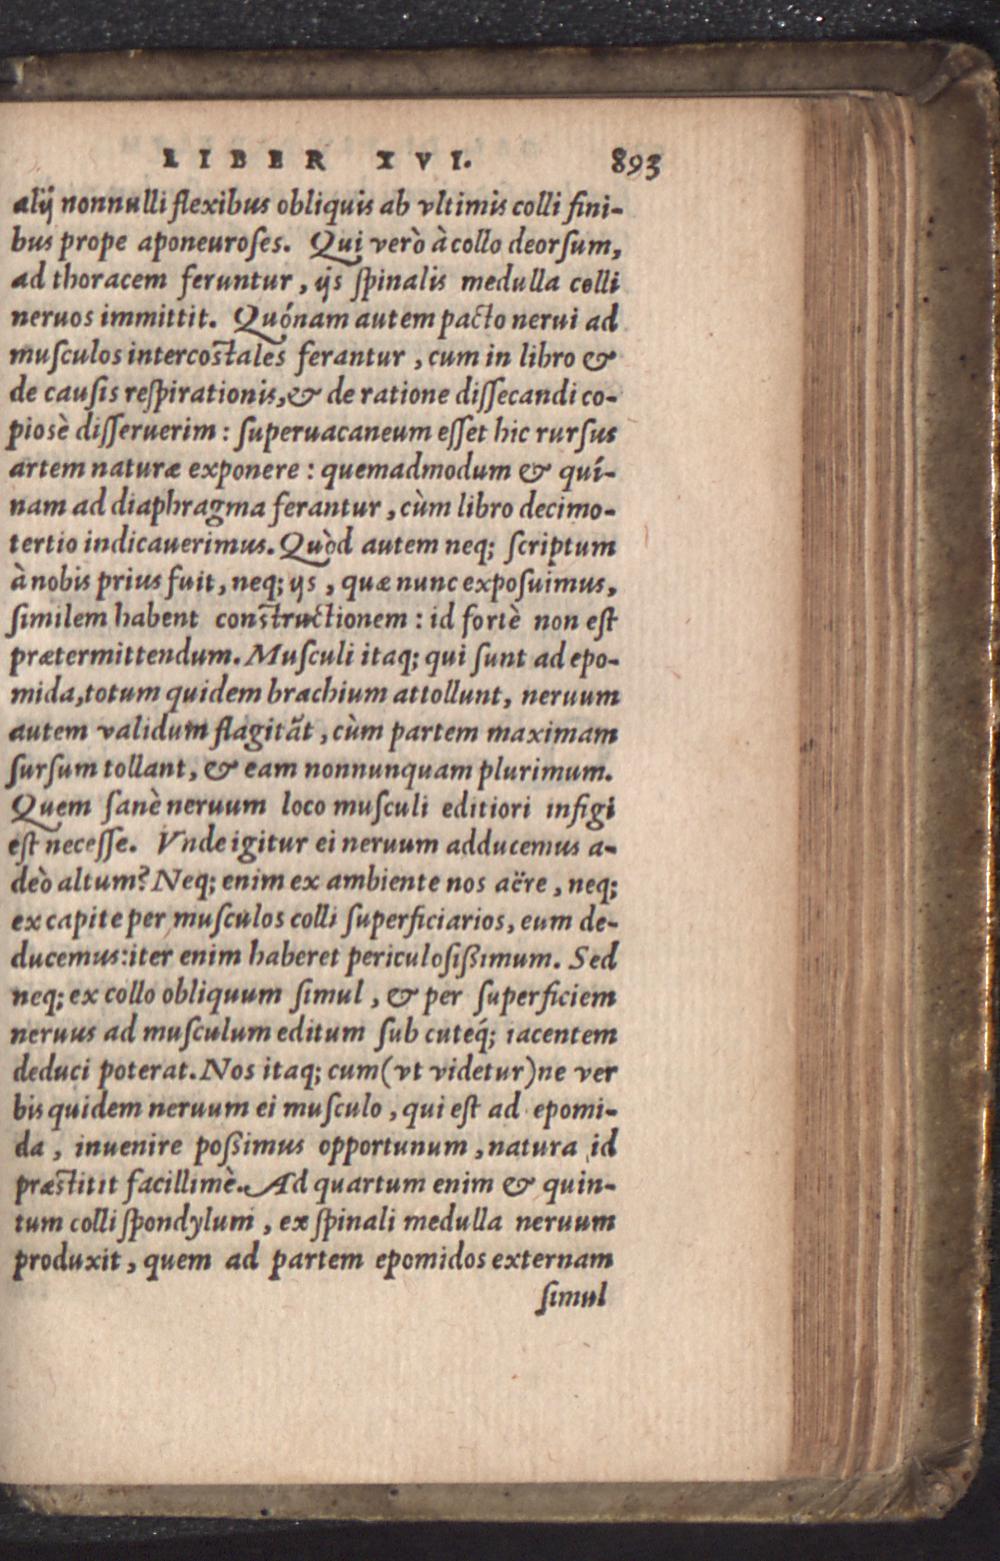 LIBER XVI. 893
alij nonnulli flexibus obliquis ab vltimis colli fini-
bus prope aponeuroſes. Qui verò à collo deorſum,
ad thoracem feruntur, ijs ſpinalis medulla colli
neruos immittit. Quónam autem pacto nerui ad
muſculos intercoſtales ferantur, cum in libro &
de cauſis reſpirationis, & de ratione diſſecandi co-
piosè diſſeruerim: ſuperuacaneum eſſet hic rurſus
artem naturæ exponere: quemadmodum & quí-
nam ad diaphragma ferantur, cùm libro decimo-
tertio indicauerimus. Quòd autem neq; ſcriptum
à nobis prius fuit, neq; ijs, quæ nunc expoſuimus,
ſimilem habent conſtructionem: id fortè non eſt
prætermittendum. Muſculi itaq; qui ſunt ad epo-
mida, totum quidem brachium attollunt, neruum
autem validum flagitãt, cùm partem maximam
ſurſum tollant, & eam nonnunquam plurimum.
Quem ſanè neruum loco muſculi editiori infigi
eſt neceſſe. Vnde igitur ei neruum adducemus a-
deò altum? Neq; enim ex ambiente nos aëre, neq;
ex capite per muſculos colli ſuperficiarios, eum de-
ducemus: iter enim haberet periculoſiſsimum. Sed
neq; ex collo obliquum ſimul, & per ſuperficiem
neruus ad muſculum editum ſub cuteq́; iacentem
deduci poterat. Nos itaq; cum (vt videtur) ne ver
bis quidem neruum ei muſculo, qui eſt ad epomi-
da, inuenire poſsimus opportunum, natura id
præſtitit facillimè. Ad quartum enim & quin-
tum colli ſpondylum, ex ſpinali medulla neruum
produxit, quem ad partem epomidos externam
ſimul